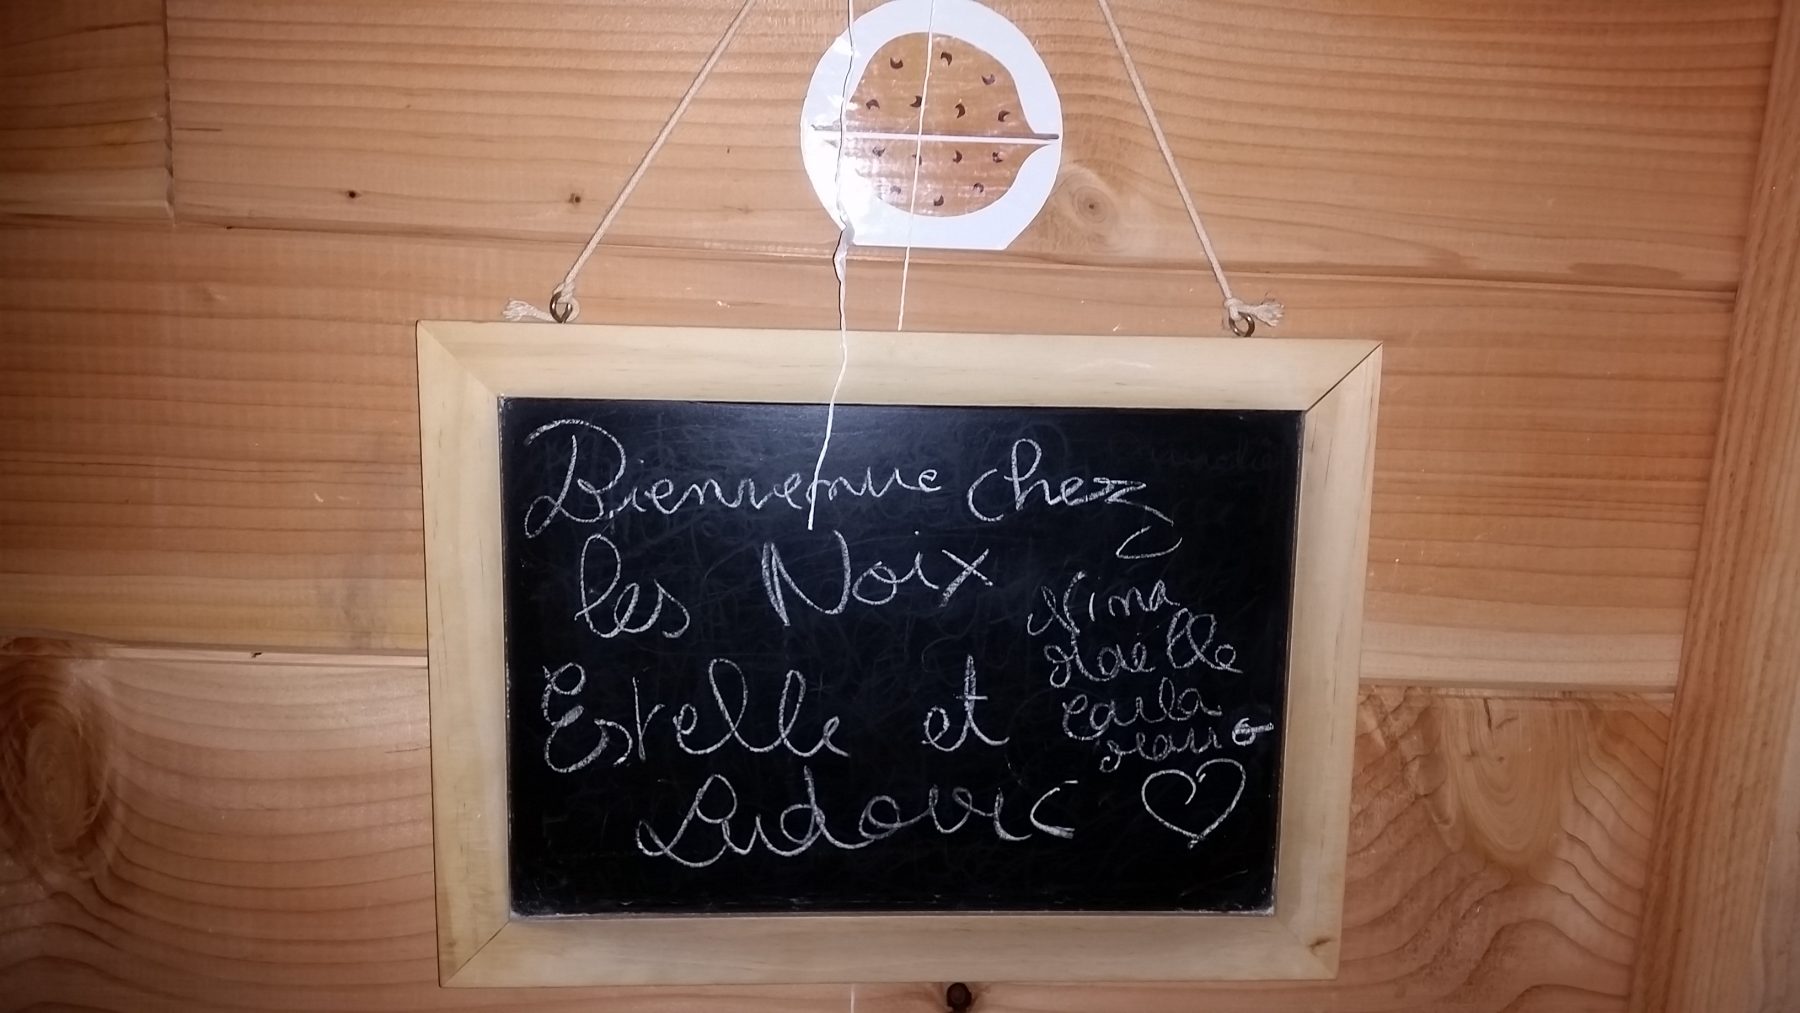 Bienvenue chez
les Noix
Estelle et
Ludovic
Nina
Maëlle
Carla